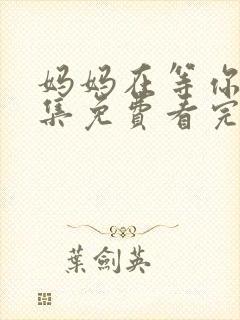 妈妈在等你
集免費看完
葉劍英